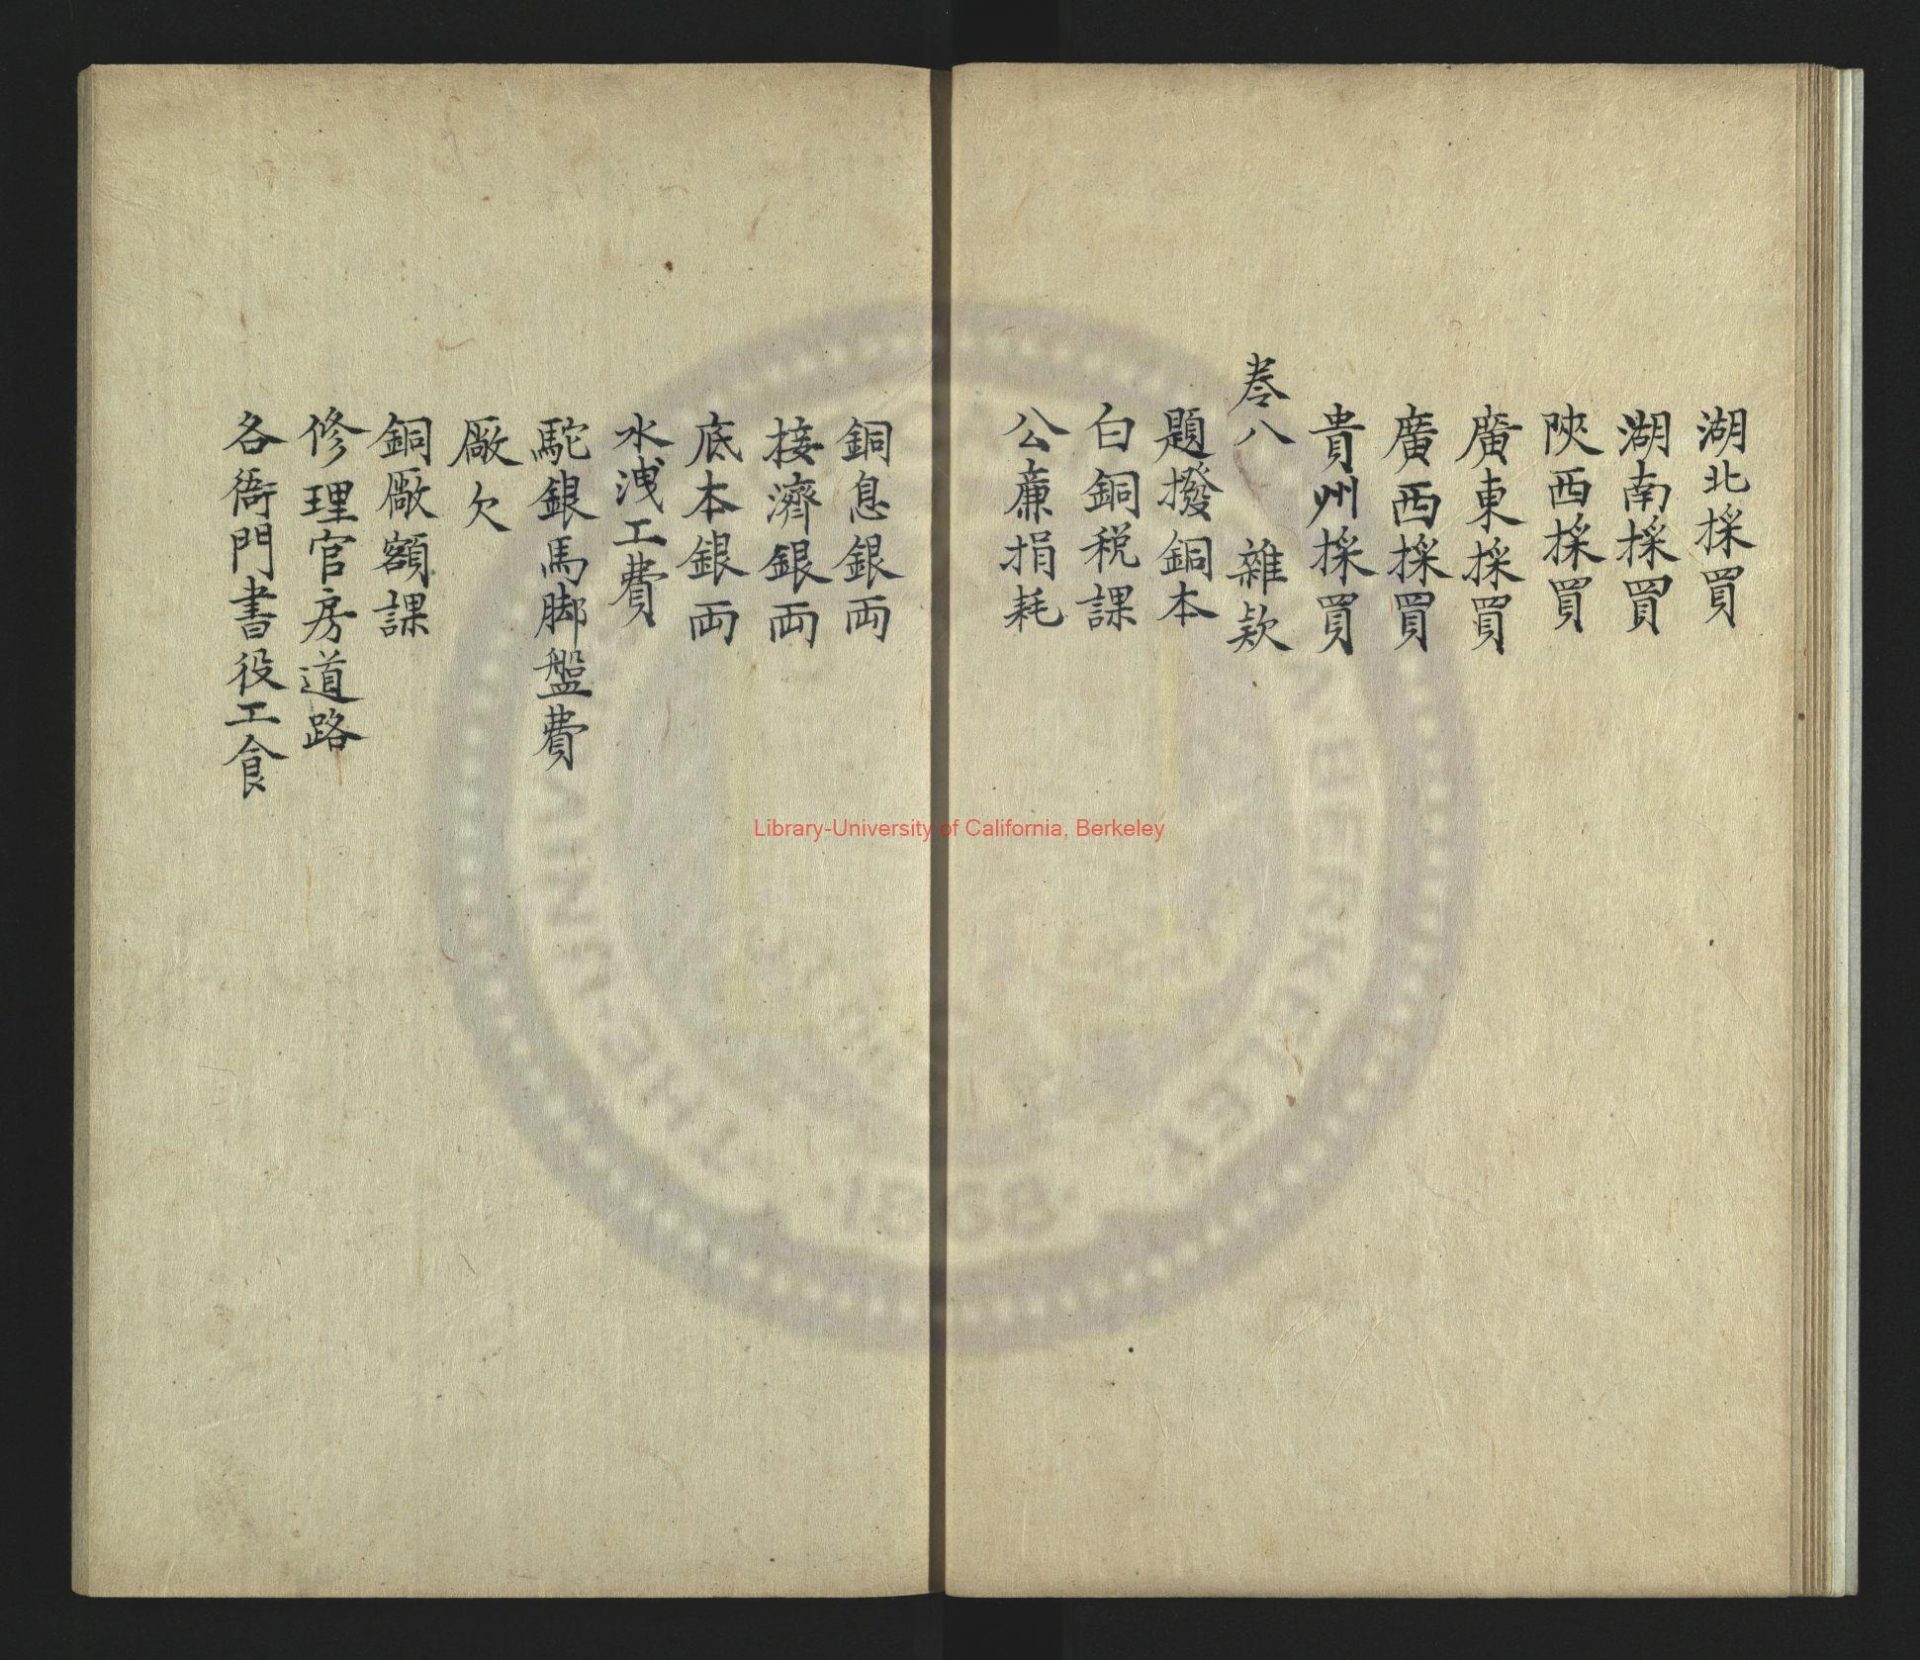 湖北採買
湖南採買
陝西採買
廣東採買
廣西採買
貴州採買
卷八 雜款
題撥銅本
白銅税課
公廉捐耗
銅息銀両
接濟銀両
底本銀両
水洩工費
駝銀馬脚盤費
厰欠
銅厰額課
修理官房道路
各衙門書役工食
Library-University of California, Berkeley